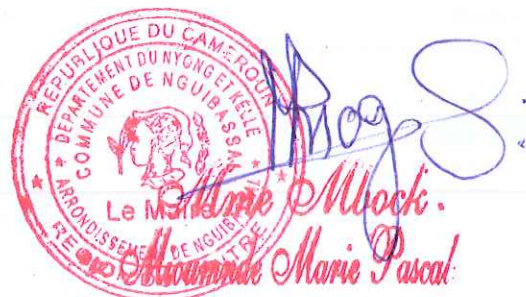 REPUBLIQUE DU CAMEROUN
DEPARTEMENT DU NYONG ET KELLE
COMMUNE DE NGUIBASSAL
ARRONDISSEMENT DE NGUIBASSAL
Le Maire
Mme Mbock.
Marie Pascal